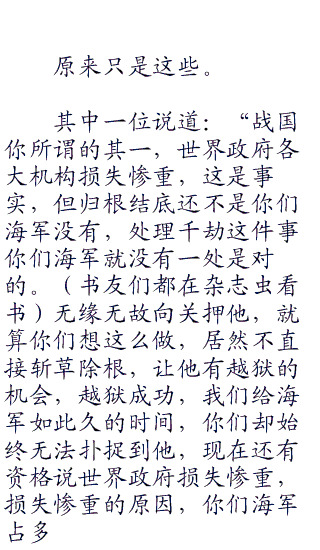 原来只是这些。
其中一位说道：“战国
你所谓的其一，世界政府各
大机构损失惨重，这是事
实，但归根结底还不是你们
海军没有，处理千劫这件事
你们海军就没有一处是对
的。（书友们都在杂志虫看
书）无缘无故向关押他，就
算你们想这么做，居然不直
接斩草除根，让他有越狱的
机会，越狱成功，我们给海
军如此久的时间，你们却始
终无法扑捉到他，现在还有
资格说世界政府损失惨重，
损失惨重的原因，你们海军
占多